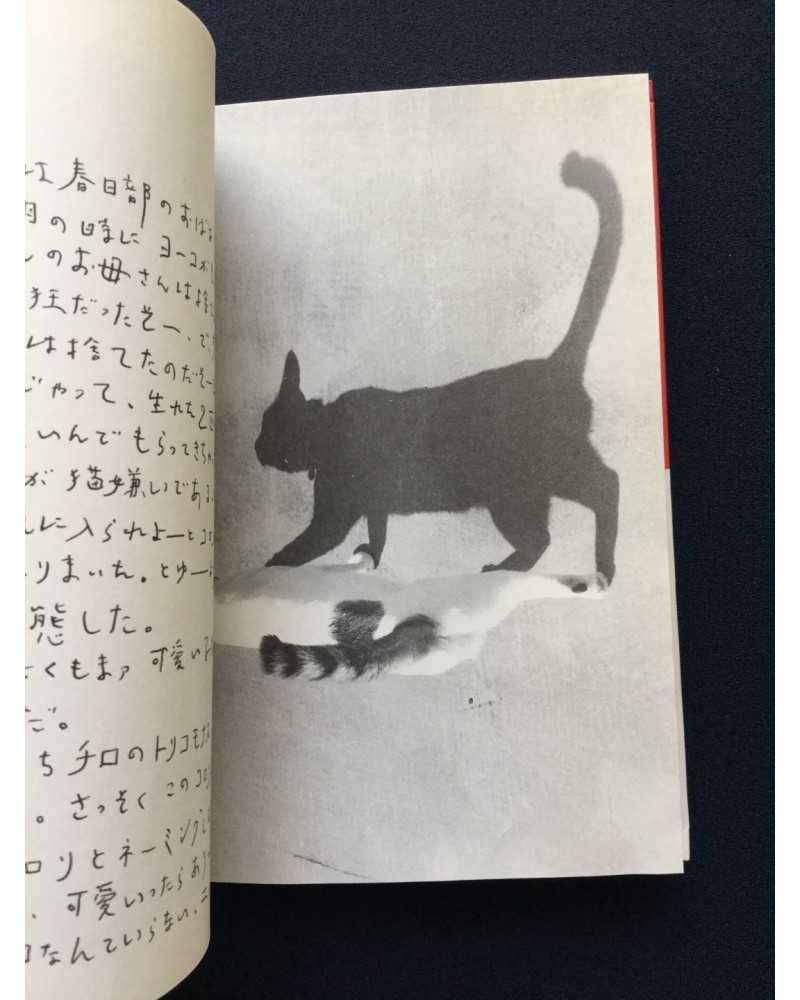 は春日部のおばあ
の時に ヨーコが
しのお母さんは捨
狂だったそー、で、
は捨てたのだそー
じゃって、生れた
いんでもらってきちゃ
が 猫嫌いである
に入られよーとコロ
りまいた。とゆー
態した。
くもまァ 可愛い
だ。
ち チロのトリコ
。さっそく このコ
ロリとネーミング
、可愛いったらあり
なんていらない、ニ